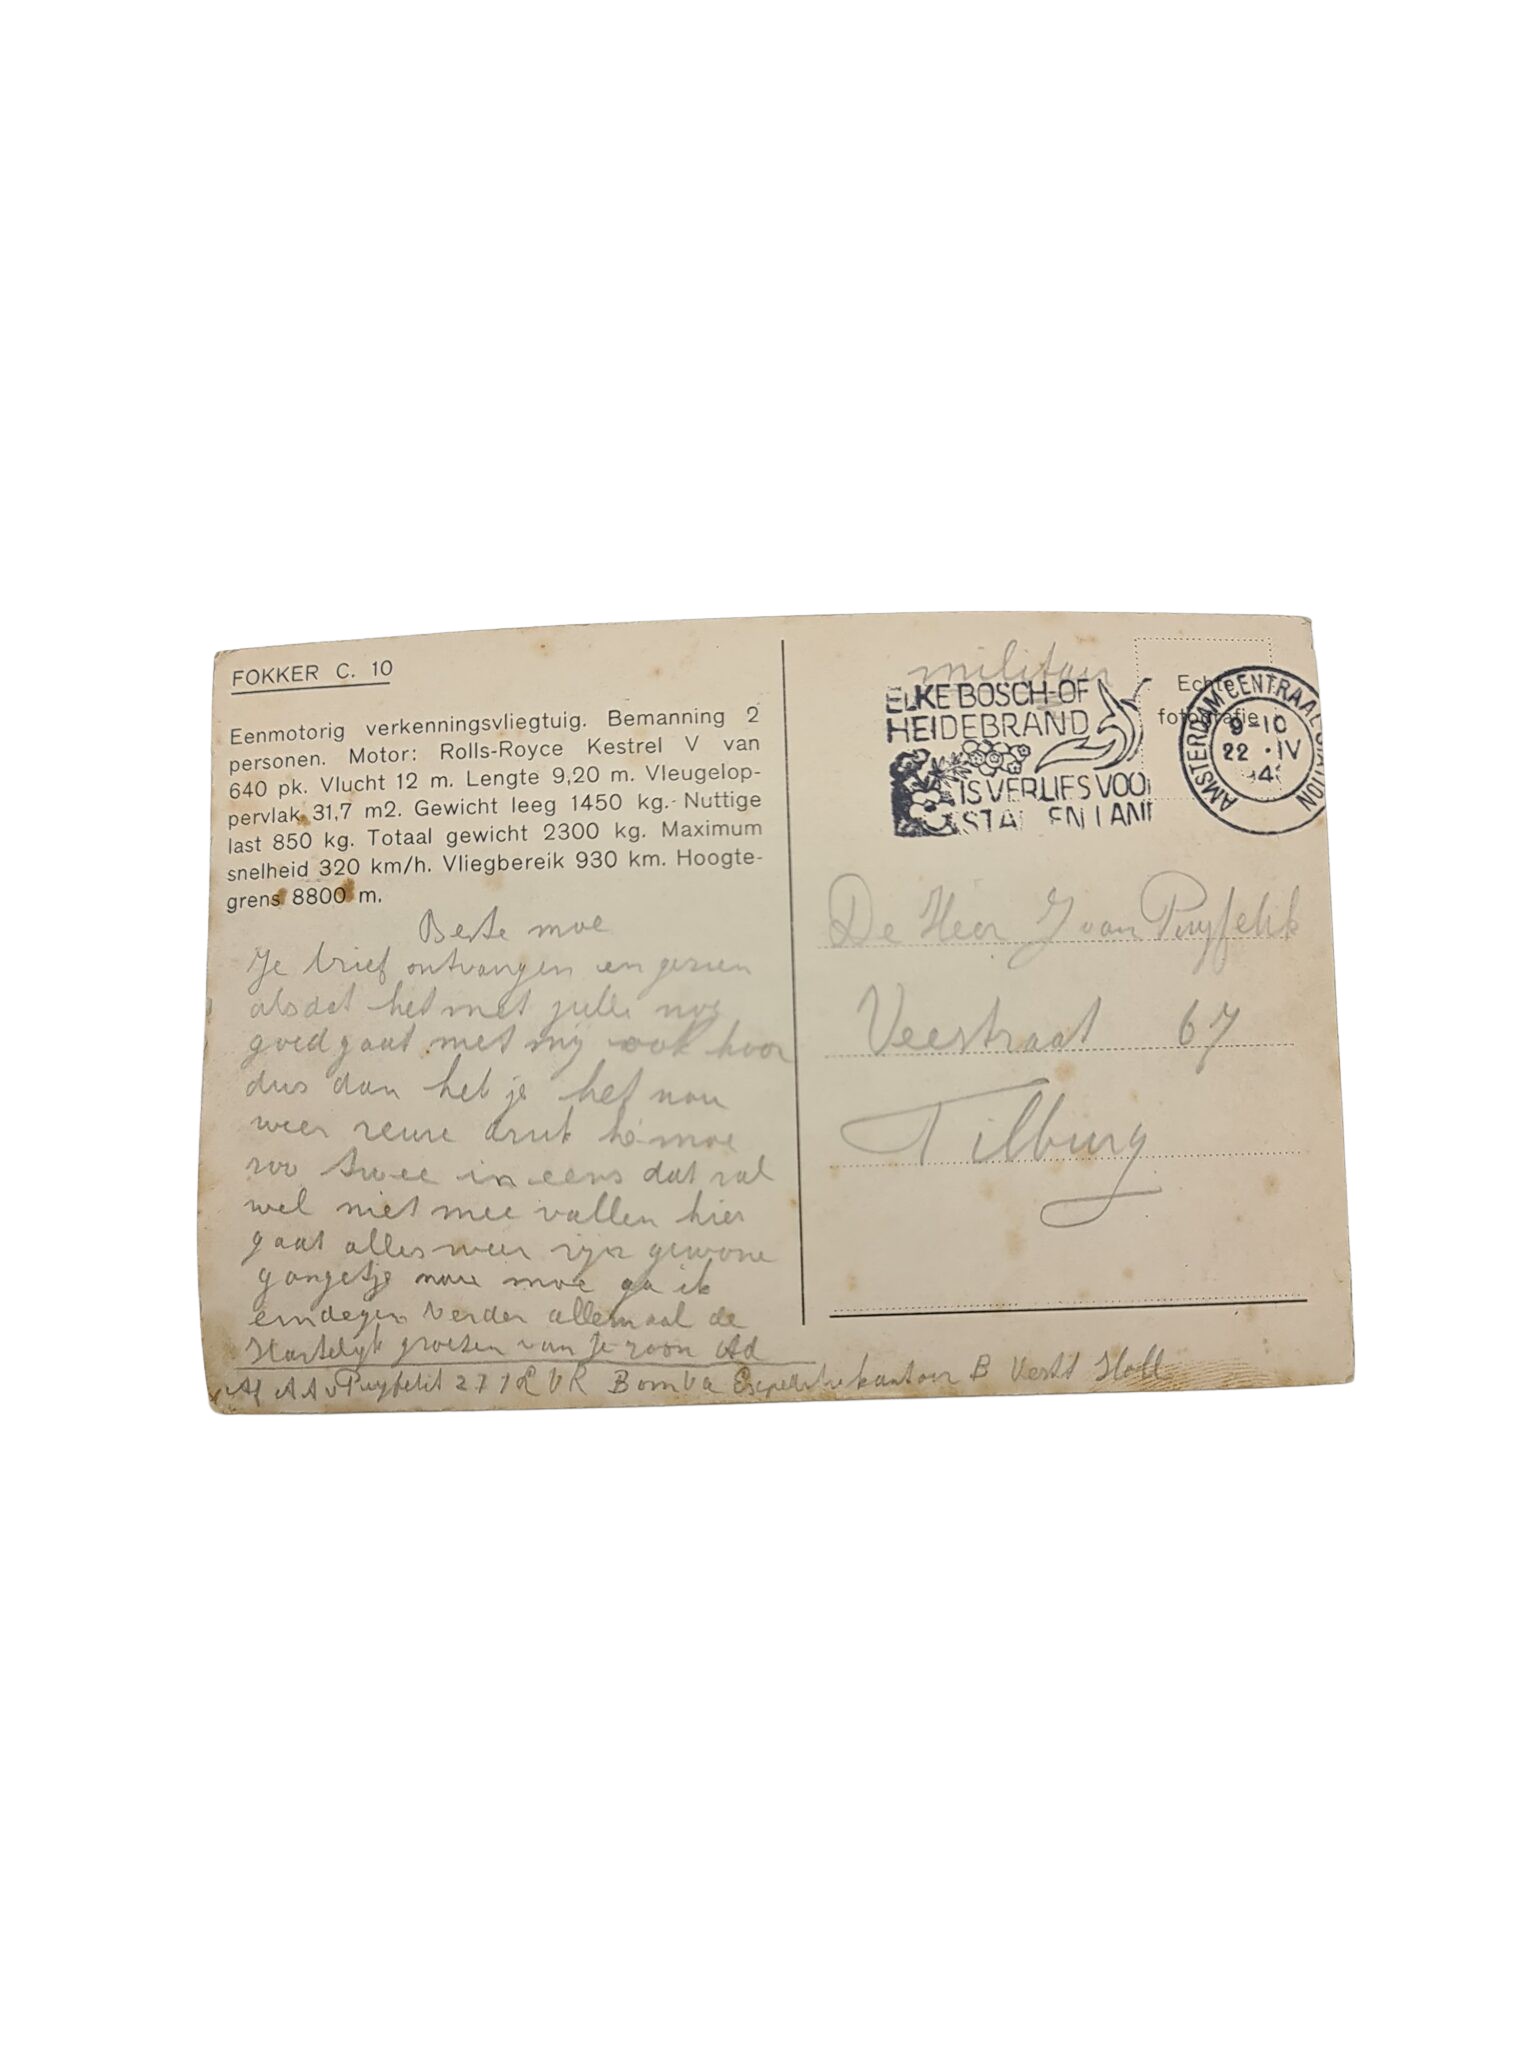 FOKKER C. 10
Eenmotorig verkenningsvliegtuig. Bemanning 2
personen. Motor: Rolls-Royce Kestrel V van
640 pk. Vlucht 12 m. Lengte 9,20 m. Vleugelop-
pervlak 31,7 m2. Gewicht leeg 1450 kg. Nuttige
last 850 kg. Totaal gewicht 2300 kg. Maximum
snelheid 320 km/h. Vliegbereik 930 km. Hoogte-
grens 8800 m.
Beste moe
Je brief ontvangen en gezien
alsdat het met jullie nog
goed gaat met mij ook hoor
dus dan heb je het nou
weer reuze druk hé moe
zoo twee in eens dat zal
wel niet mee vallen hier
gaat alles weer zijn gewone
gangetje nou moe ga ik
eindegen verder allemaal de
Hartelijk groeten van je zoon Ad
Af A A v Puyfelik 2 7 R V R Bomva Expeditiekantoor B Verst Holl
militair
Echte
fotografie
ELKE BOSCH-OF
HEIDEBRAND
IS VERLIES VOO
STA EN LAN
AMSTERDAM CENTRAAL STATION
9-10
22 · IV
194
De Heer J van Puyfelik
Veestraat 67
Tilburg